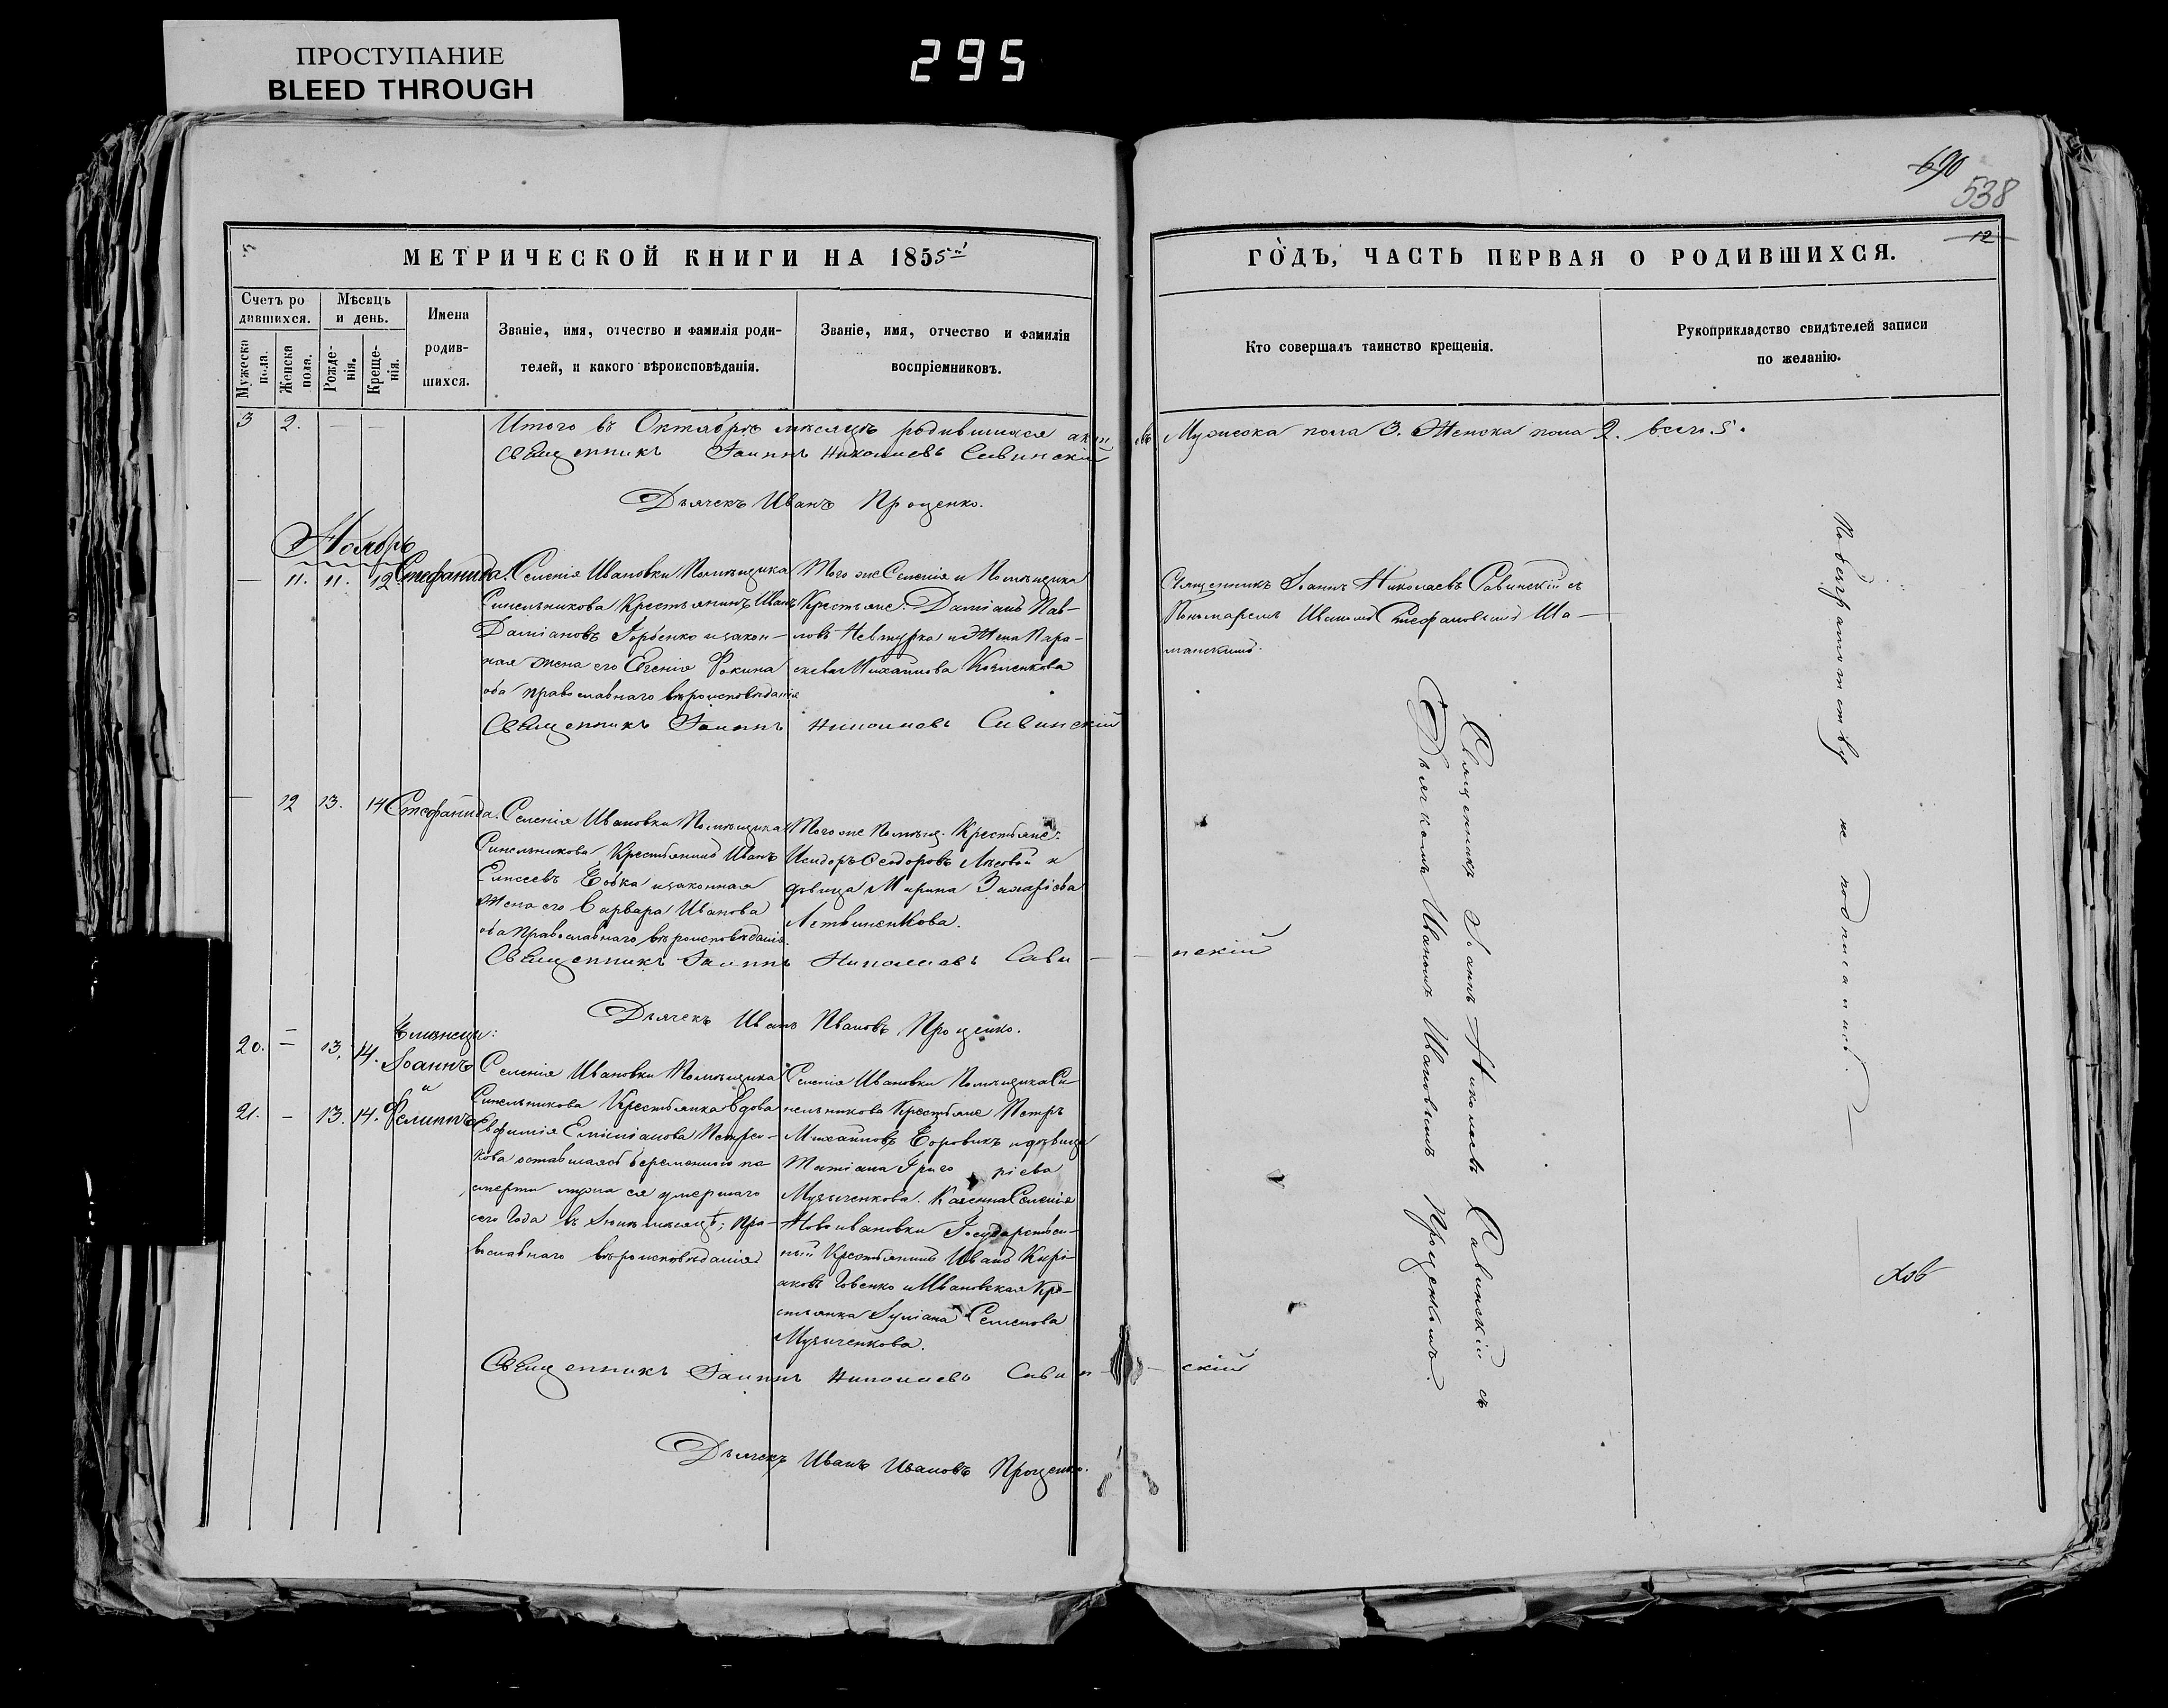 ПРОСТУПАНИЕ
BLEED THROUGH
295
690
538
12
МЕТРИЧЕСКОЙ КНИГИ НА 1855й
ГОДЪ, ЧАСТЬ ПЕРВАЯ О РОДИВШИХСЯ.
Счетъ ро
дившихся.
Мужеска пола.
Женска пола.
Мѣсяцъ
и день.
Рожде-
нія.
Креще-
нія.
Имена
родив-
шихся.
Званіе, имя, отчество и фамилія роди-
телей, и какого вѣроисповѣданія.
Званіе, имя, отчество и фамилія
воспріемниковъ.
Кто совершалъ таинство крещенія.
Рукоприкладство свидѣтелей записи
по желанію.
3 2. Итого въ Октябрѣ мѣсяцѣ родившихся
Мужеска пола 3. Женска пола 2. всего 5.
Священникъ Іоаннъ Николаевъ Савинскій
Дьячекъ Иванъ Проценко.
Ноябрь
— 11. 11. 12 Стефанида.
Селенія Ивановки Помѣщика
Синельникова Крестьянинъ Иванъ
Даміановъ Горбенко и закон-
ная жена его Евгенія Фокина
оба православнаго вѣроисповѣданія
Того же Селенія и Помѣщика
Крестьяне: Даміанъ Пав-
ловъ и Жена Пара-
скева Михайлова
Священникъ Іоаннъ Николаевъ Савинскій съ
Пономаремъ Иваномъ Стефановымъ Ша-
Священникъ Іоаннъ Николаевъ Савинскій
— 12 13. 14 Стефанида.
Селенія Ивановки Помѣщика
Синельникова Крестьянинъ Иванъ
Бобка и законная
Жена его Варвара Иванова
оба Православнаго вѣроисповѣданія.
Того же Помѣщ. Крестьяне:
Исидоръ Ѳеодоровъ Лѣсовой и
дѣвица Марина Захаріева
Литвиненкова.
Священникъ Іоаннъ Николаевъ Сави - - нскій
Дьячекъ Иванъ Ивановъ Проценко.
Близнецы:
20. — 13. 14. Іоаннъ
и
21. — 13. 14. Филиппъ
Селенія Ивановки Помѣщика
Синельникова Крестьянка вдова
Евфимія Емиліанова
кова оставшаяся беременною по
смерти мужа ея умершаго
сего Года въ мѣсяцѣ; Пра-
вославнаго вѣроисповѣданія
Селенія Ивановки Помѣщика Си-
нельникова Крестьяне Петръ
Михайловъ Боровикъ и дѣвица
Татіана Григоріева
Музыченкова. Казенна Селенія
Новоивановки Государствен-
ный Крестьянинъ Иванъ Кирі-
аковъ и Ивановская Кре-
стьянка Іуліана Семенова
Музыченкова.
Священникъ Іоаннъ Николаевъ Савин - - скій
Дьячекъ Иванъ Ивановъ Проценко.
Священникъ Іоаннъ Николаевъ Савинскій съ
Дьячкомъ Иваномъ Ивановымъ Проценкомъ.
По безграмотству не подписались.